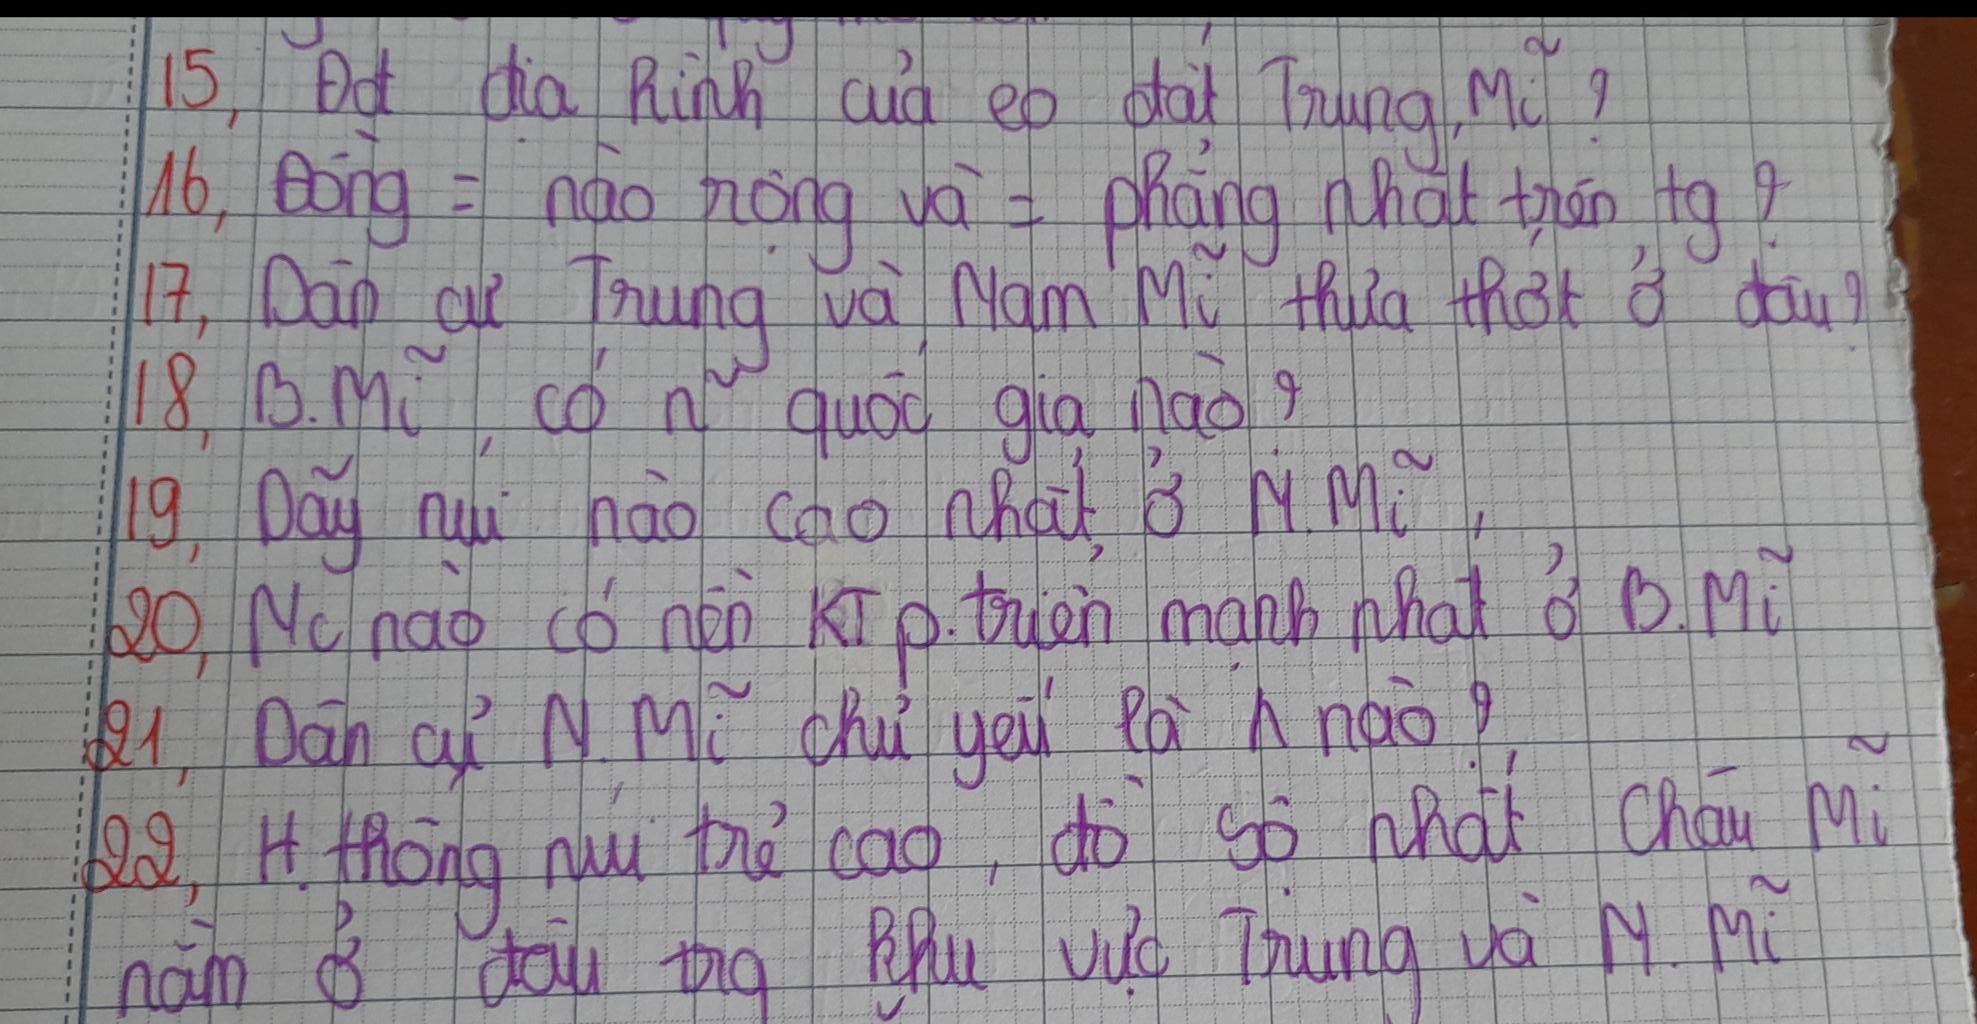 15, Đđ địa hình của eo đất Trung Mĩ ?
16, Đồng = nào rộng và = phẳng nhất trên tg ?
17, Dân cư Trung và Nam Mĩ thưa thớt ở đâu?
18, B.Mĩ có n~ quốc gia nào ?
19, Dãy núi nào cao nhất ở N.Mĩ
20, Nc nào có nền KT p.triển mạnh nhất ở B.Mĩ
21, Dân cư N.Mĩ chủ yếu là ng nào ?
22, H.thống núi trẻ cao, đồ sộ nhất Châu Mĩ
nằm ở đâu trg khu vực Trung và N.Mĩ